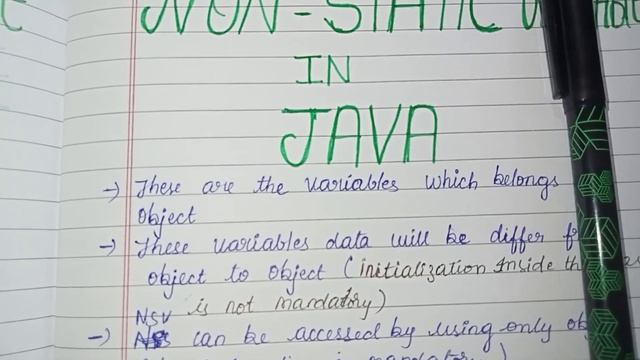 NON-STATIC
IN
JAVA
→ These are the variables which belongs
object
→ These variables data will be differ
object to object (initialization Inside
NSV is not mandatory)
→ can be accessed by using only